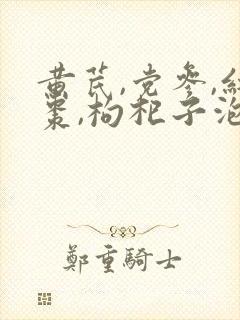 黄芪,党参,红
枣,枸杞子泡
鄭重騎士